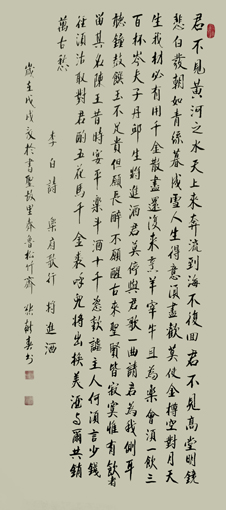 君不見黃河之水天上來奔流到海不復回君不見高堂明鏡
悲白發朝如青絲暮成雪人生得意須盡歡莫使金樽空對月天
生我材必有用千金散盡還復來烹羊宰牛且為樂會須一飲三
百杯岑夫子丹邱生將進酒君莫停與君歌一曲請君為我側耳
聽鐘鼓饌玉不足貴但願長醉不願醒古來聖賢皆寂寞惟有飲者
留其名陳王昔時宴平樂斗酒十千恣歡謔主人何須言少錢
徑須沽取對君酌五花馬千金裘呼兒將出換美酒與爾共銷
萬古愁
李白詩 樂府 行 將進酒
歲在戊戌 於書聖故里 松竹齋